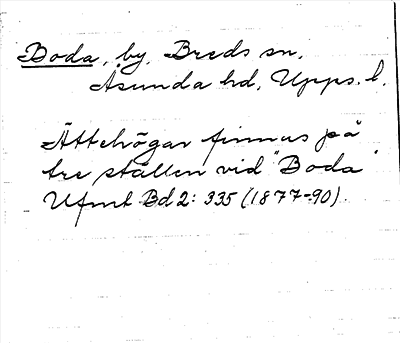 Boda, by, Breds sn,
Åsunda hd, Upps. l.
Ättehögar finnas på
tre ställen vid "Boda"
Ufmt Bd 2: 335 (1877-90).